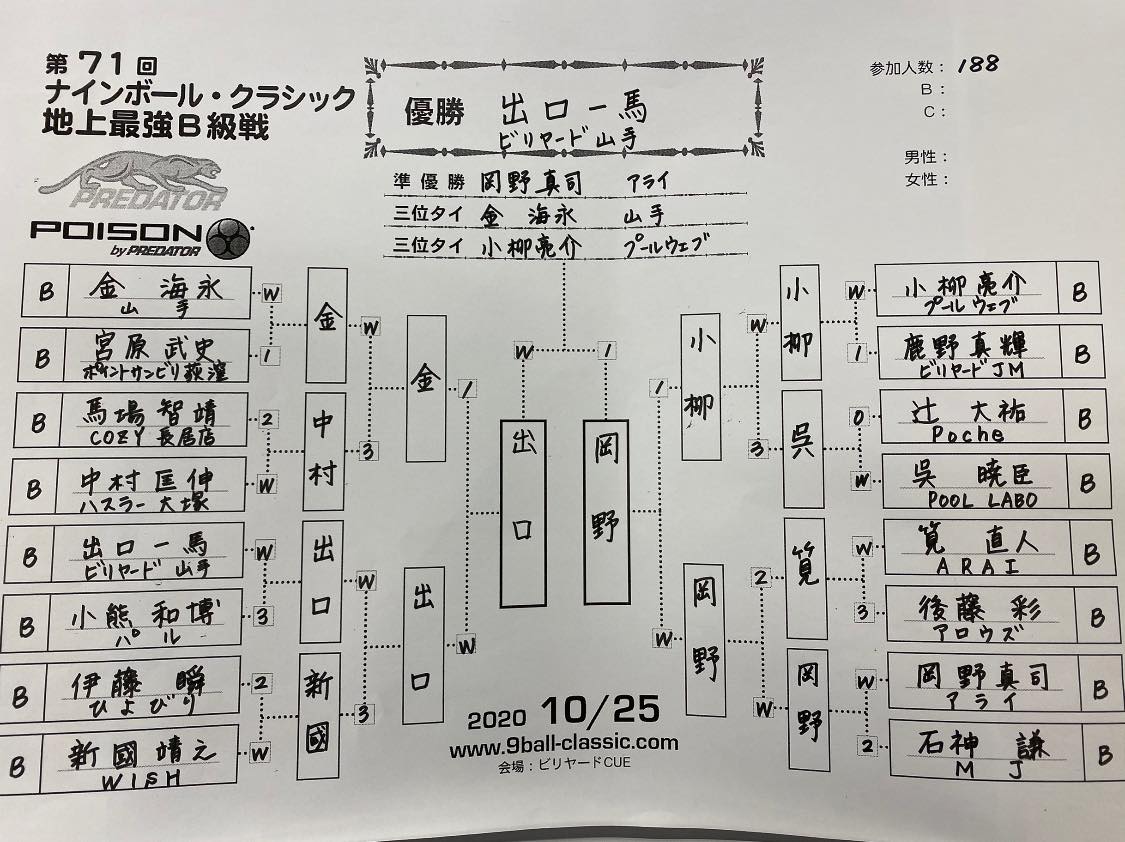 第71回
ナインボール・クラシック
地上最強B級戦
PREDATOR
POISON
by PREDATOR
優勝 出口一馬
ビリヤード山手
準優勝 岡野真司 アライ
三位タイ 金 海永 山手
三位タイ 小柳亮介 プールウェブ
参加人数：188
B：
C：
男性：
女性：
B 金 海永 W
山手
B 宮原武史 1
ポイントサンビリ荻窪
B 馬場智靖 2
COZY長居店
B 中村匡伸 W
ハスラー大塚
B 出口一馬 W
ビリヤード山手
B 小熊和博 3
パル
B 伊藤瞬 2
ひよびり
B 新國靖之 W
WISH
金 W
中村 3
出口 W
新國 3
金 1
出口 W
出口 W
岡野 1
小柳 1
岡野 W
小柳 W
呉 3
筧 2
岡野 W
W 小柳亮介 B
プールウェブ
1 鹿野真輝 B
ビリヤードJM
0 辻 大祐 B
Poche
W 呉 暁臣 B
POOL LABO
W 筧 直人 B
ARAI
3 後藤彩 B
アロウズ
W 岡野真司 B
アライ
2 石神 謙 B
MJ
2020 10/25
www.9ball-classic.com
会場：ビリヤードCUE